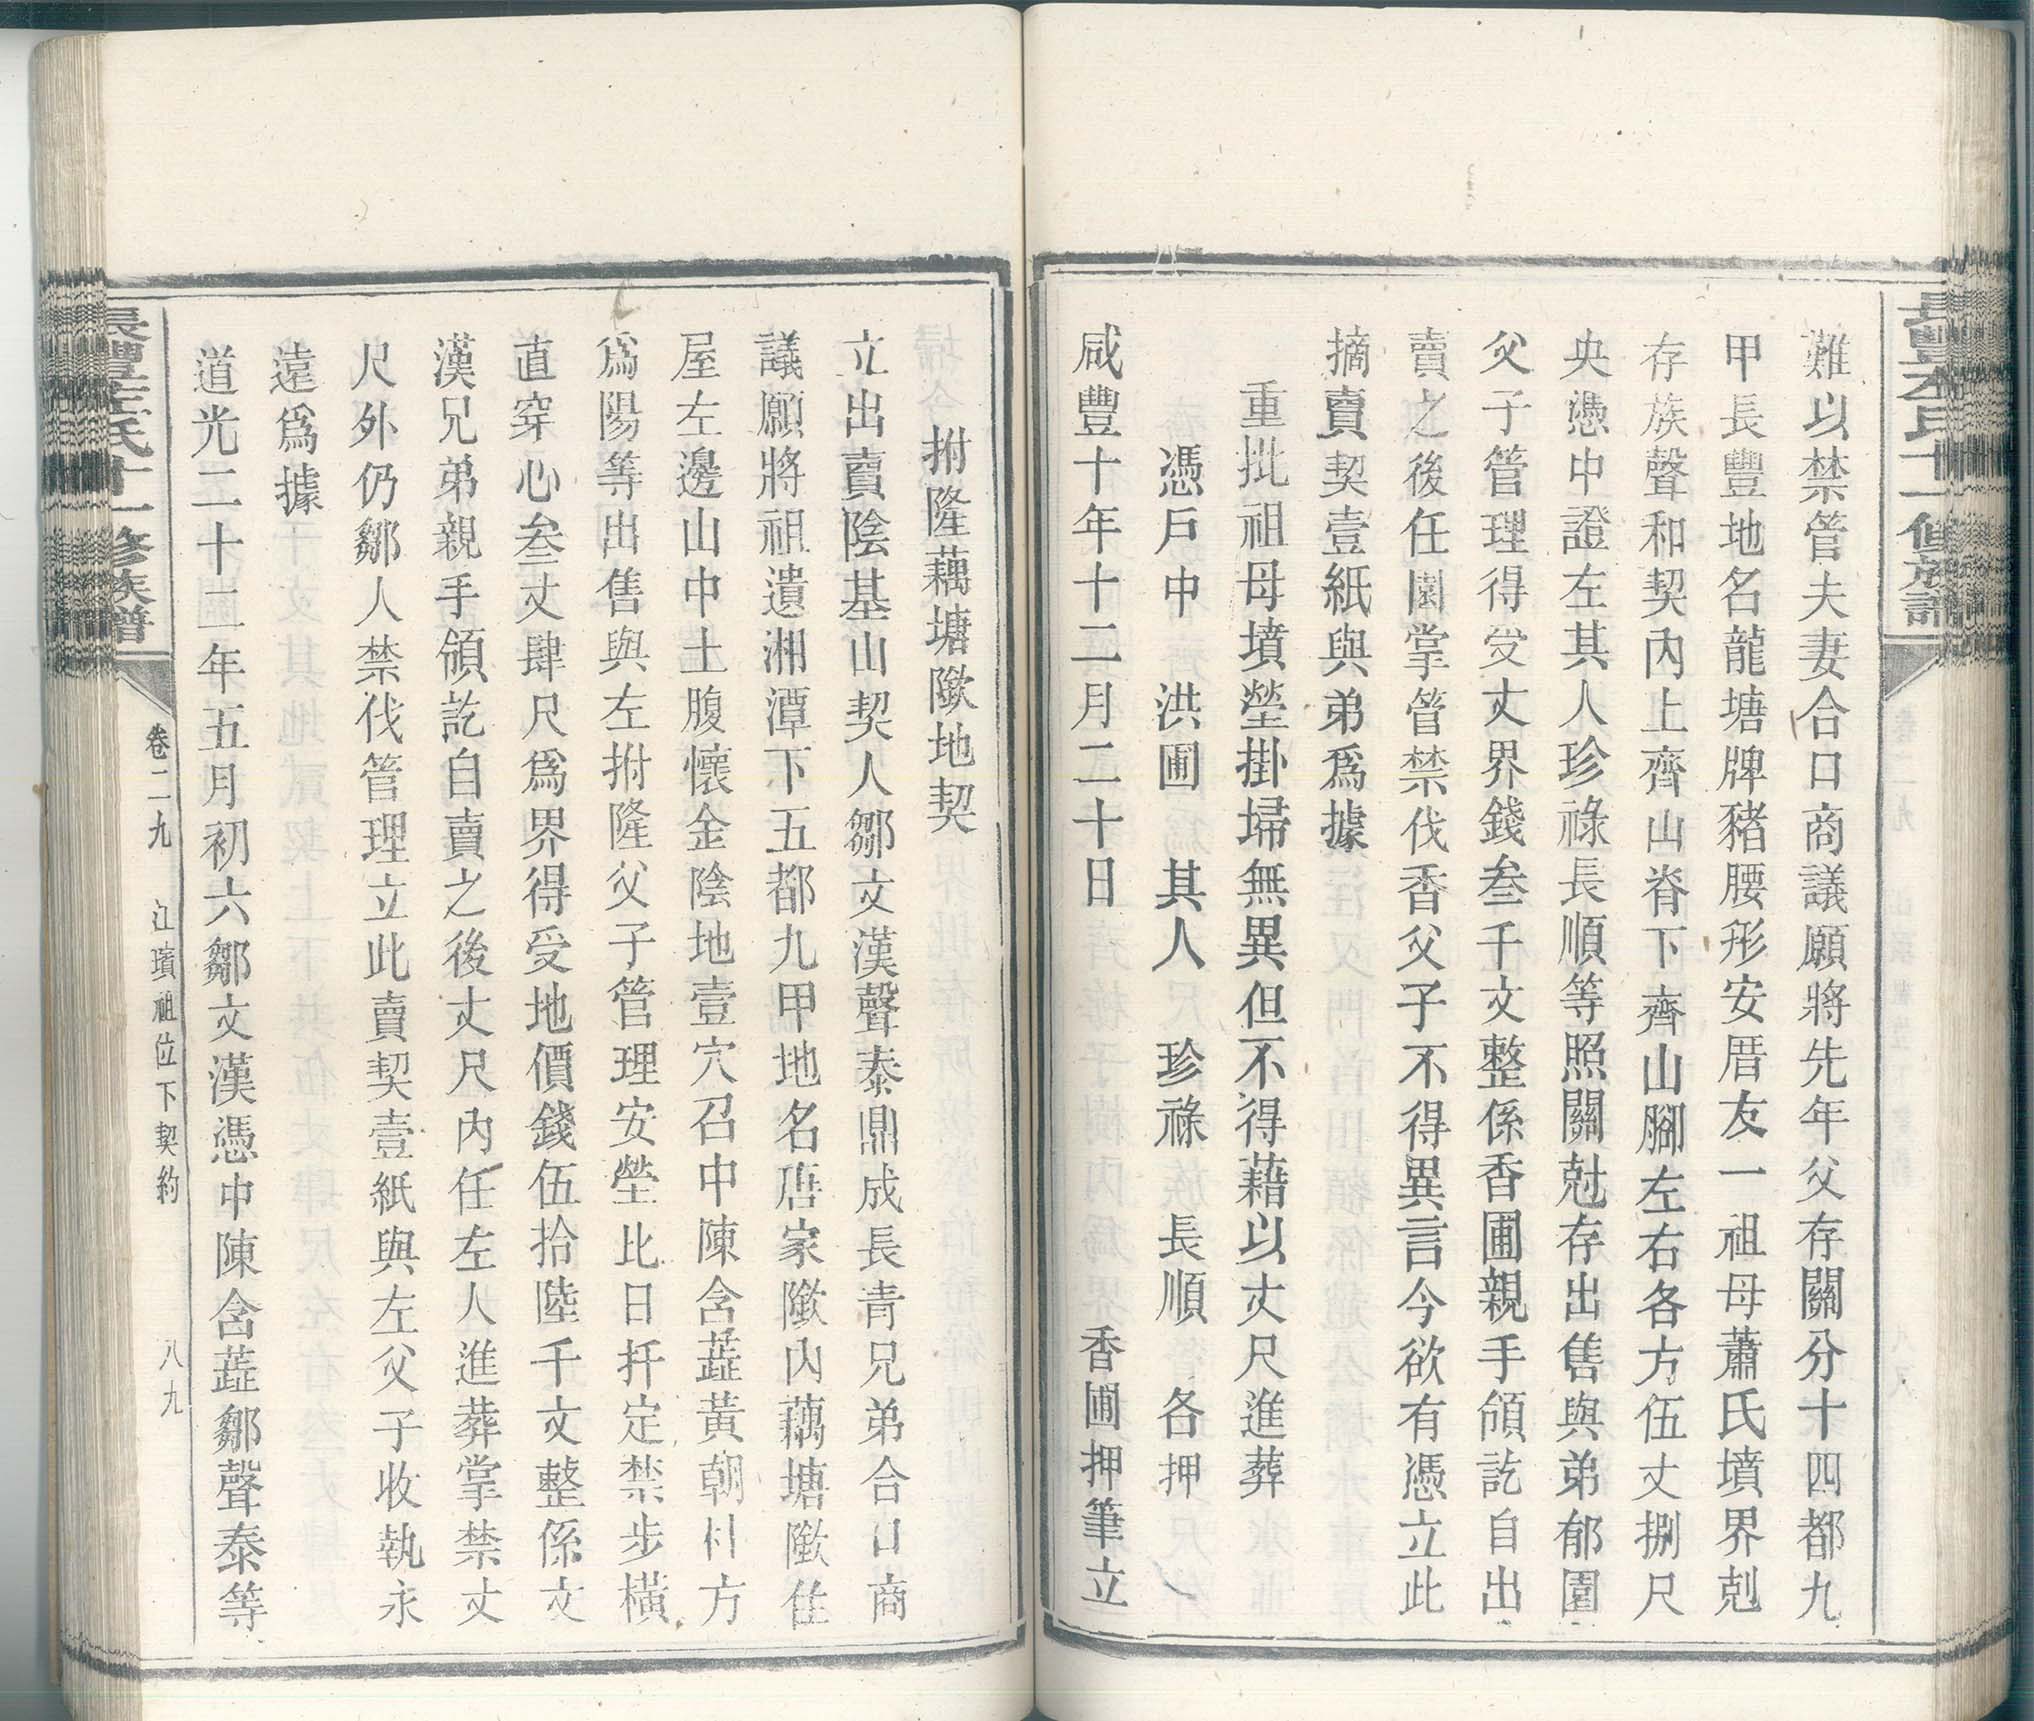 難以禁管夫妻合口商議願將先年父存關分十四都九
甲長豐地名龍塘牌豬腰形安厝友一祖母蕭氏墳界剋
存族聲和契內上齊山脊下齊山腳左右各方伍丈捌尺
央憑中證左其人珍祿長順等照關尅存出售與弟郁園
父子管理得受丈界錢叁千文整係香圃親手領訖自出
賣之後任園掌管禁伐香父子不得異言今欲有憑立此
摘賣契壹紙與弟爲據
重批祖母墳塋掛掃無異但不得藉以丈尺進葬
憑戶中 洪圃 其人 珍祿 長順 各押
咸豐十年十二月二十日 香圃押筆立
拊隆藕塘㘭地契
立出賣陰基山契人鄒文漢聲泰鼎成長青兄弟合口商
議願將祖遺湘潭下五都九甲地名唐家㘭內藕塘㘭住
屋左邊山中土腹懷金陰地壹穴召中陳含蕋黃朝柱方
爲陽等出售與左拊隆父子管理安塋比日扦定禁步橫
直穿心叁丈肆尺爲界得受地價錢伍拾陸千文整係文
漢兄弟親手領訖自賣之後丈尺內任左人進葬掌禁丈
尺外仍鄒人禁伐管理立此賣契壹紙與左父子收執永
遠爲據
道光二十二年五月初六鄒文漢憑中陳含蕋鄒聲泰等
長豐左氏十一修族譜
卷二九 江璜祖位下契約 八九